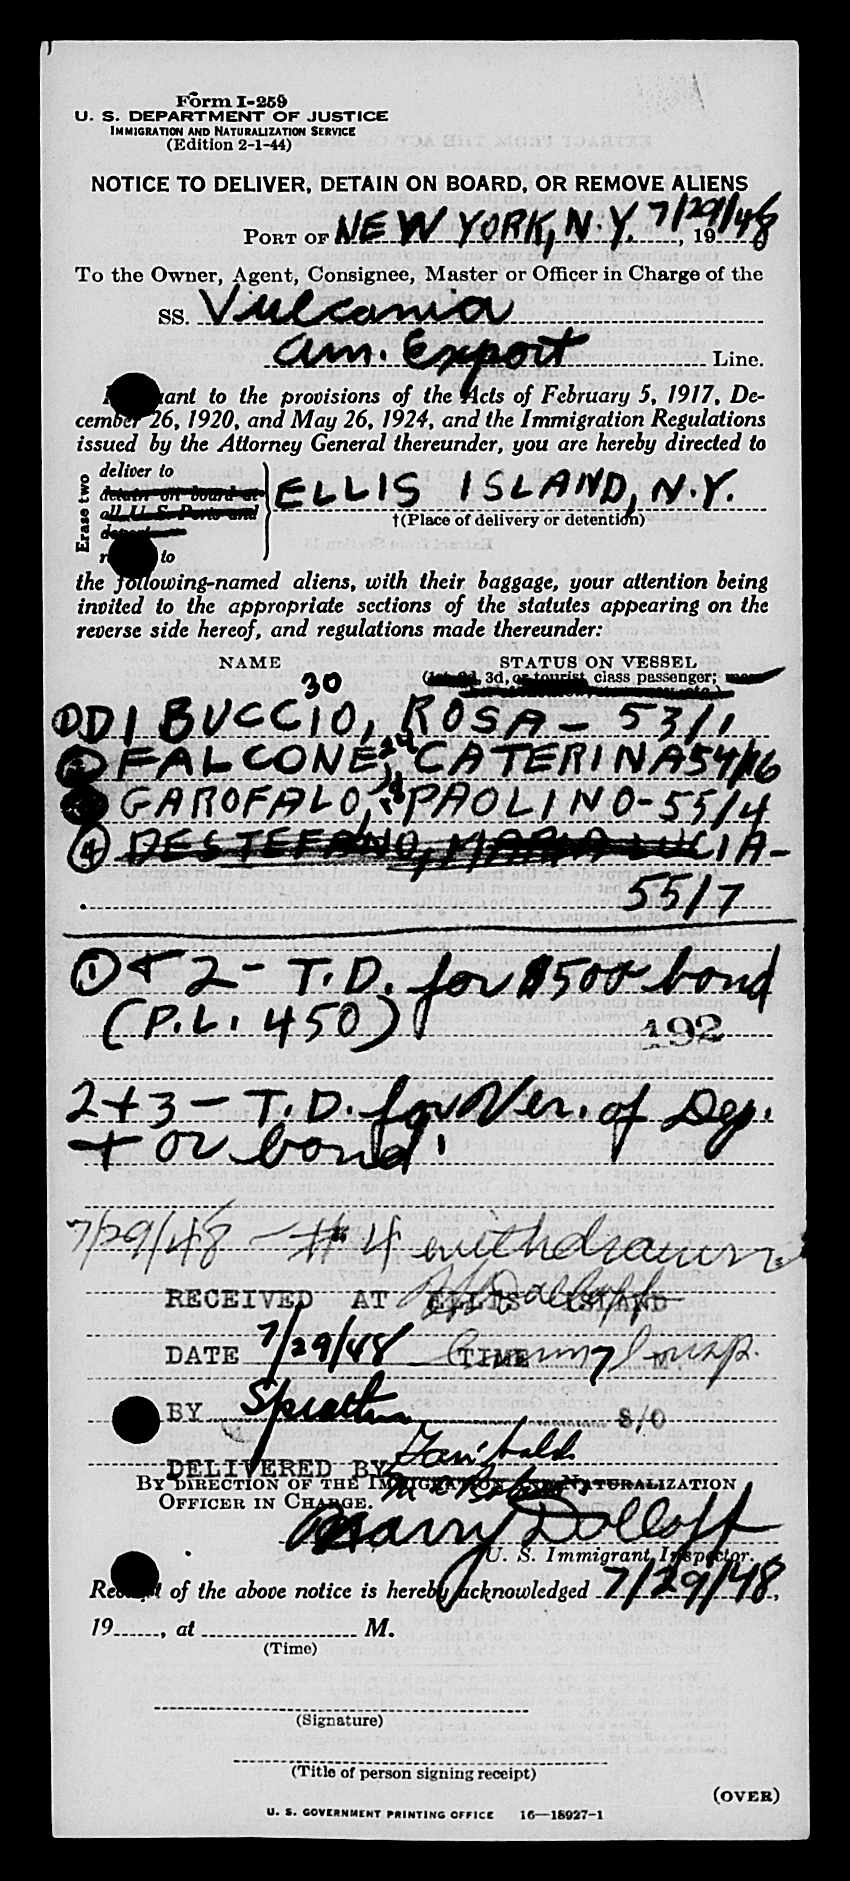 Form I-259
U. S. DEPARTMENT OF JUSTICE
IMMIGRATION AND NATURALIZATION SERVICE
(Edition 2-1-44)
NOTICE TO DELIVER, DETAIN ON BOARD, OR REMOVE ALIENS
PORT OF NEW YORK, N.Y. 7/29/48, 19
To the Owner, Agent, Consignee, Master or Officer in Charge of the
SS. Vulcania
Am. Export Line.
to the provisions of the Acts of February 5, 1917, De-
cember 26, 1920, and May 26, 1924, and the Immigration Regulations
issued by the Attorney General thereunder, you are hereby directed to
Erase two
deliver to
detain on board at
all U. S. Ports and
to
ELLIS ISLAND, N.Y.
†(Place of delivery or detention)
the following-named aliens, with their baggage, your attention being
invited to the appropriate sections of the statutes appearing on the
reverse side hereof, and regulations made thereunder:
NAME STATUS ON VESSEL
3d, or tourist class passenger;
30
① DI BUCCIO, ROSA - 53/1
② FALCONE, CATERINA 54/16
③ GAROFALO, PAOLINO - 55/4
④ DESTEFANO, MARIA LUCIA -
55/7
① + 2 - T.D. for $500 bond
(P.L. 450)
192
2 + 3 - T.D. for Ver. of Dep.
+ or bond.
7/29/48 - #4 withdrawn
RECEIVED AT ELLIS ISLAND
DATE 7/29/48 TIME M.
BY S/O
DELIVERED BY
BY DIRECTION OF THE IMMIGRATION AND NATURALIZATION
OFFICER IN CHARGE.
Harry Dolloff
U. S. Immigrant Inspector.
Receipt of the above notice is hereby acknowledged 7/29/48,
19......, at M.
(Time)
(Signature)
(Title of person signing receipt)
(OVER)
U. S. GOVERNMENT PRINTING OFFICE 16—18927-1